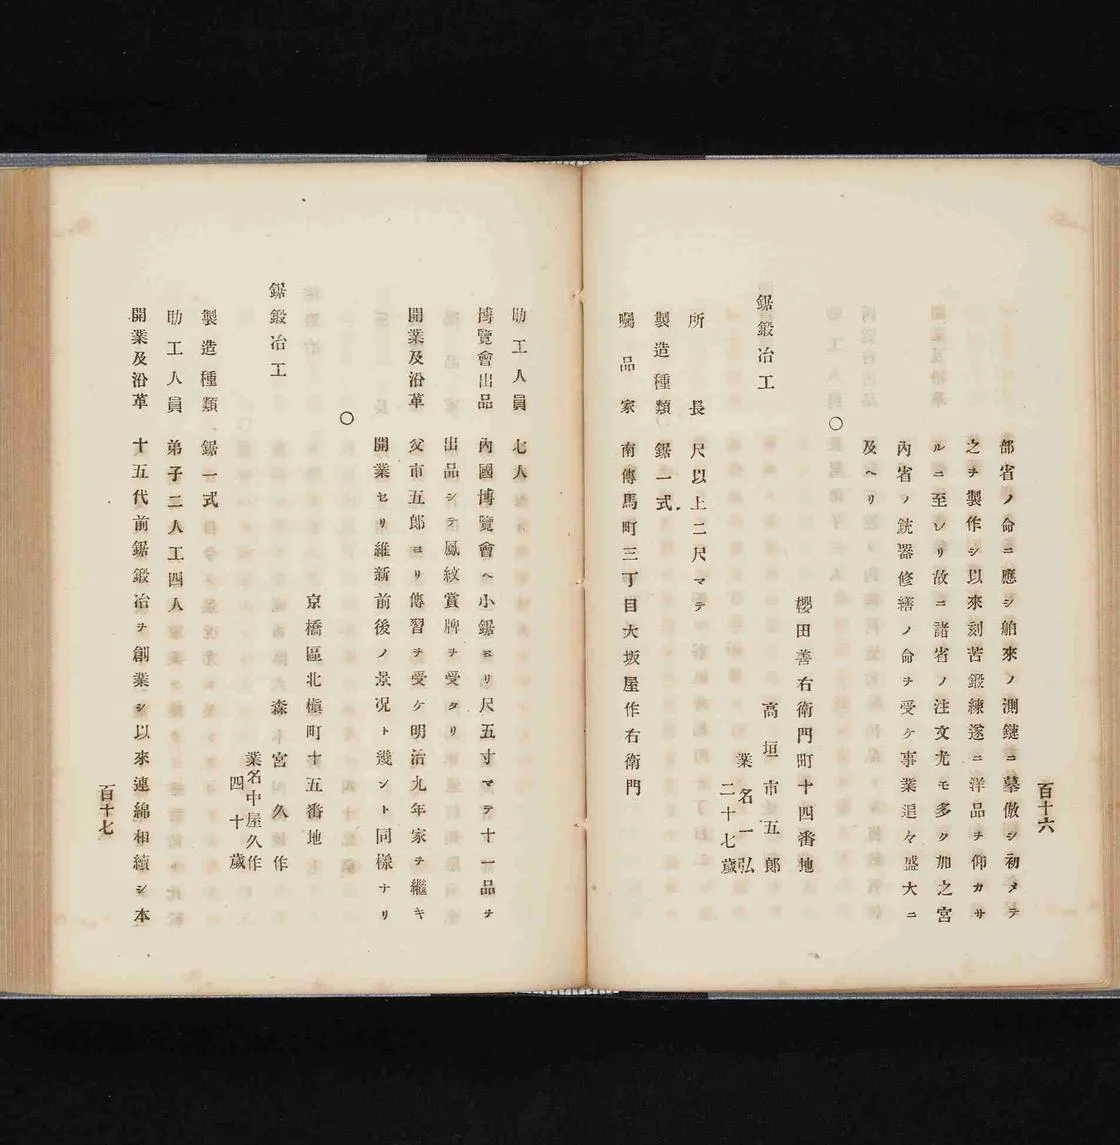 部省ノ命ニ應シ舶來ノ測鏈ニ摹倣シ初メテ
之ヲ製作シ以來刻苦鍛練遂ニ洋品ヲ仰カサ
ルニ至レリ故ニ諸省ノ注文尤モ多ク加之宮
內省ノ銃器修繕ノ命ヲ受ケ事業追々盛大ニ
及ヘリ
〇
櫻田善右衛門町十四番地
鋸鍛冶工
高垣市五郎
業名一弘
二十七歲
所長 尺以上二尺マテ
製造種類 鋸一式
囑品家 南傳馬町三丁目大坂屋作右衛門
百十六
助工人員 七人
博覽會出品 內國博覽會ヘ小鋸ヨリ尺五寸マテ十一品ヲ
出品シテ鳳紋賞牌ヲ受タリ
開業及沿革 父市五郎ヨリ傳習ヲ受ケ明治九年家ヲ繼キ
開業セリ維新前後ノ景况ト幾ント同樣ナリ
〇
京橋區北槇町十五番地
鋸鍛冶工
森宮久作
業名中屋久作
四十歲
製造種類 鋸一式
助工人員 弟子二人工四人
開業及沿革 十五代前鋸鍛冶ヲ創業シ以來連綿相續シ本
百十七